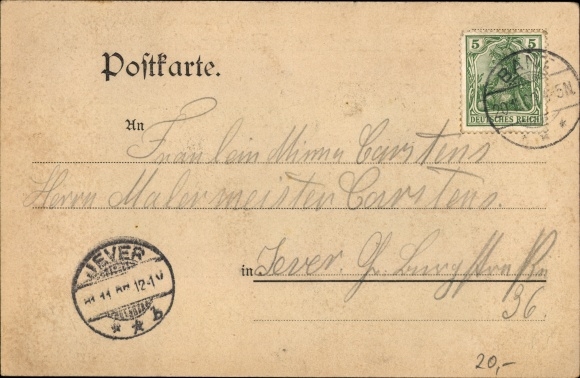 Postkarte.
5 5
DEUTSCHES REICH
BANT
An
Fräulein Minna Carstens
Herrn Malermeister Carstens.
in Jever. Gr. Burgstraße
36.
JEVER
11 12-1 N
* * b
20,-